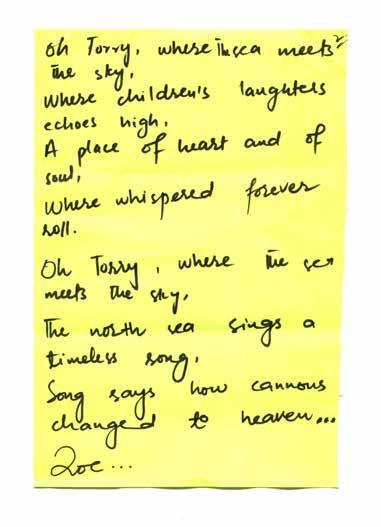 Oh Torry, where the sea meets
the sky,
Where children's laughters
echoes high,
A place of heart and of
soul,
Where whispered forever
roll.
Oh Torry, where the sea
meets the sky,
The north sea sings a
timeless song,
Song says how cannons
changed to heaven...
Zoe...